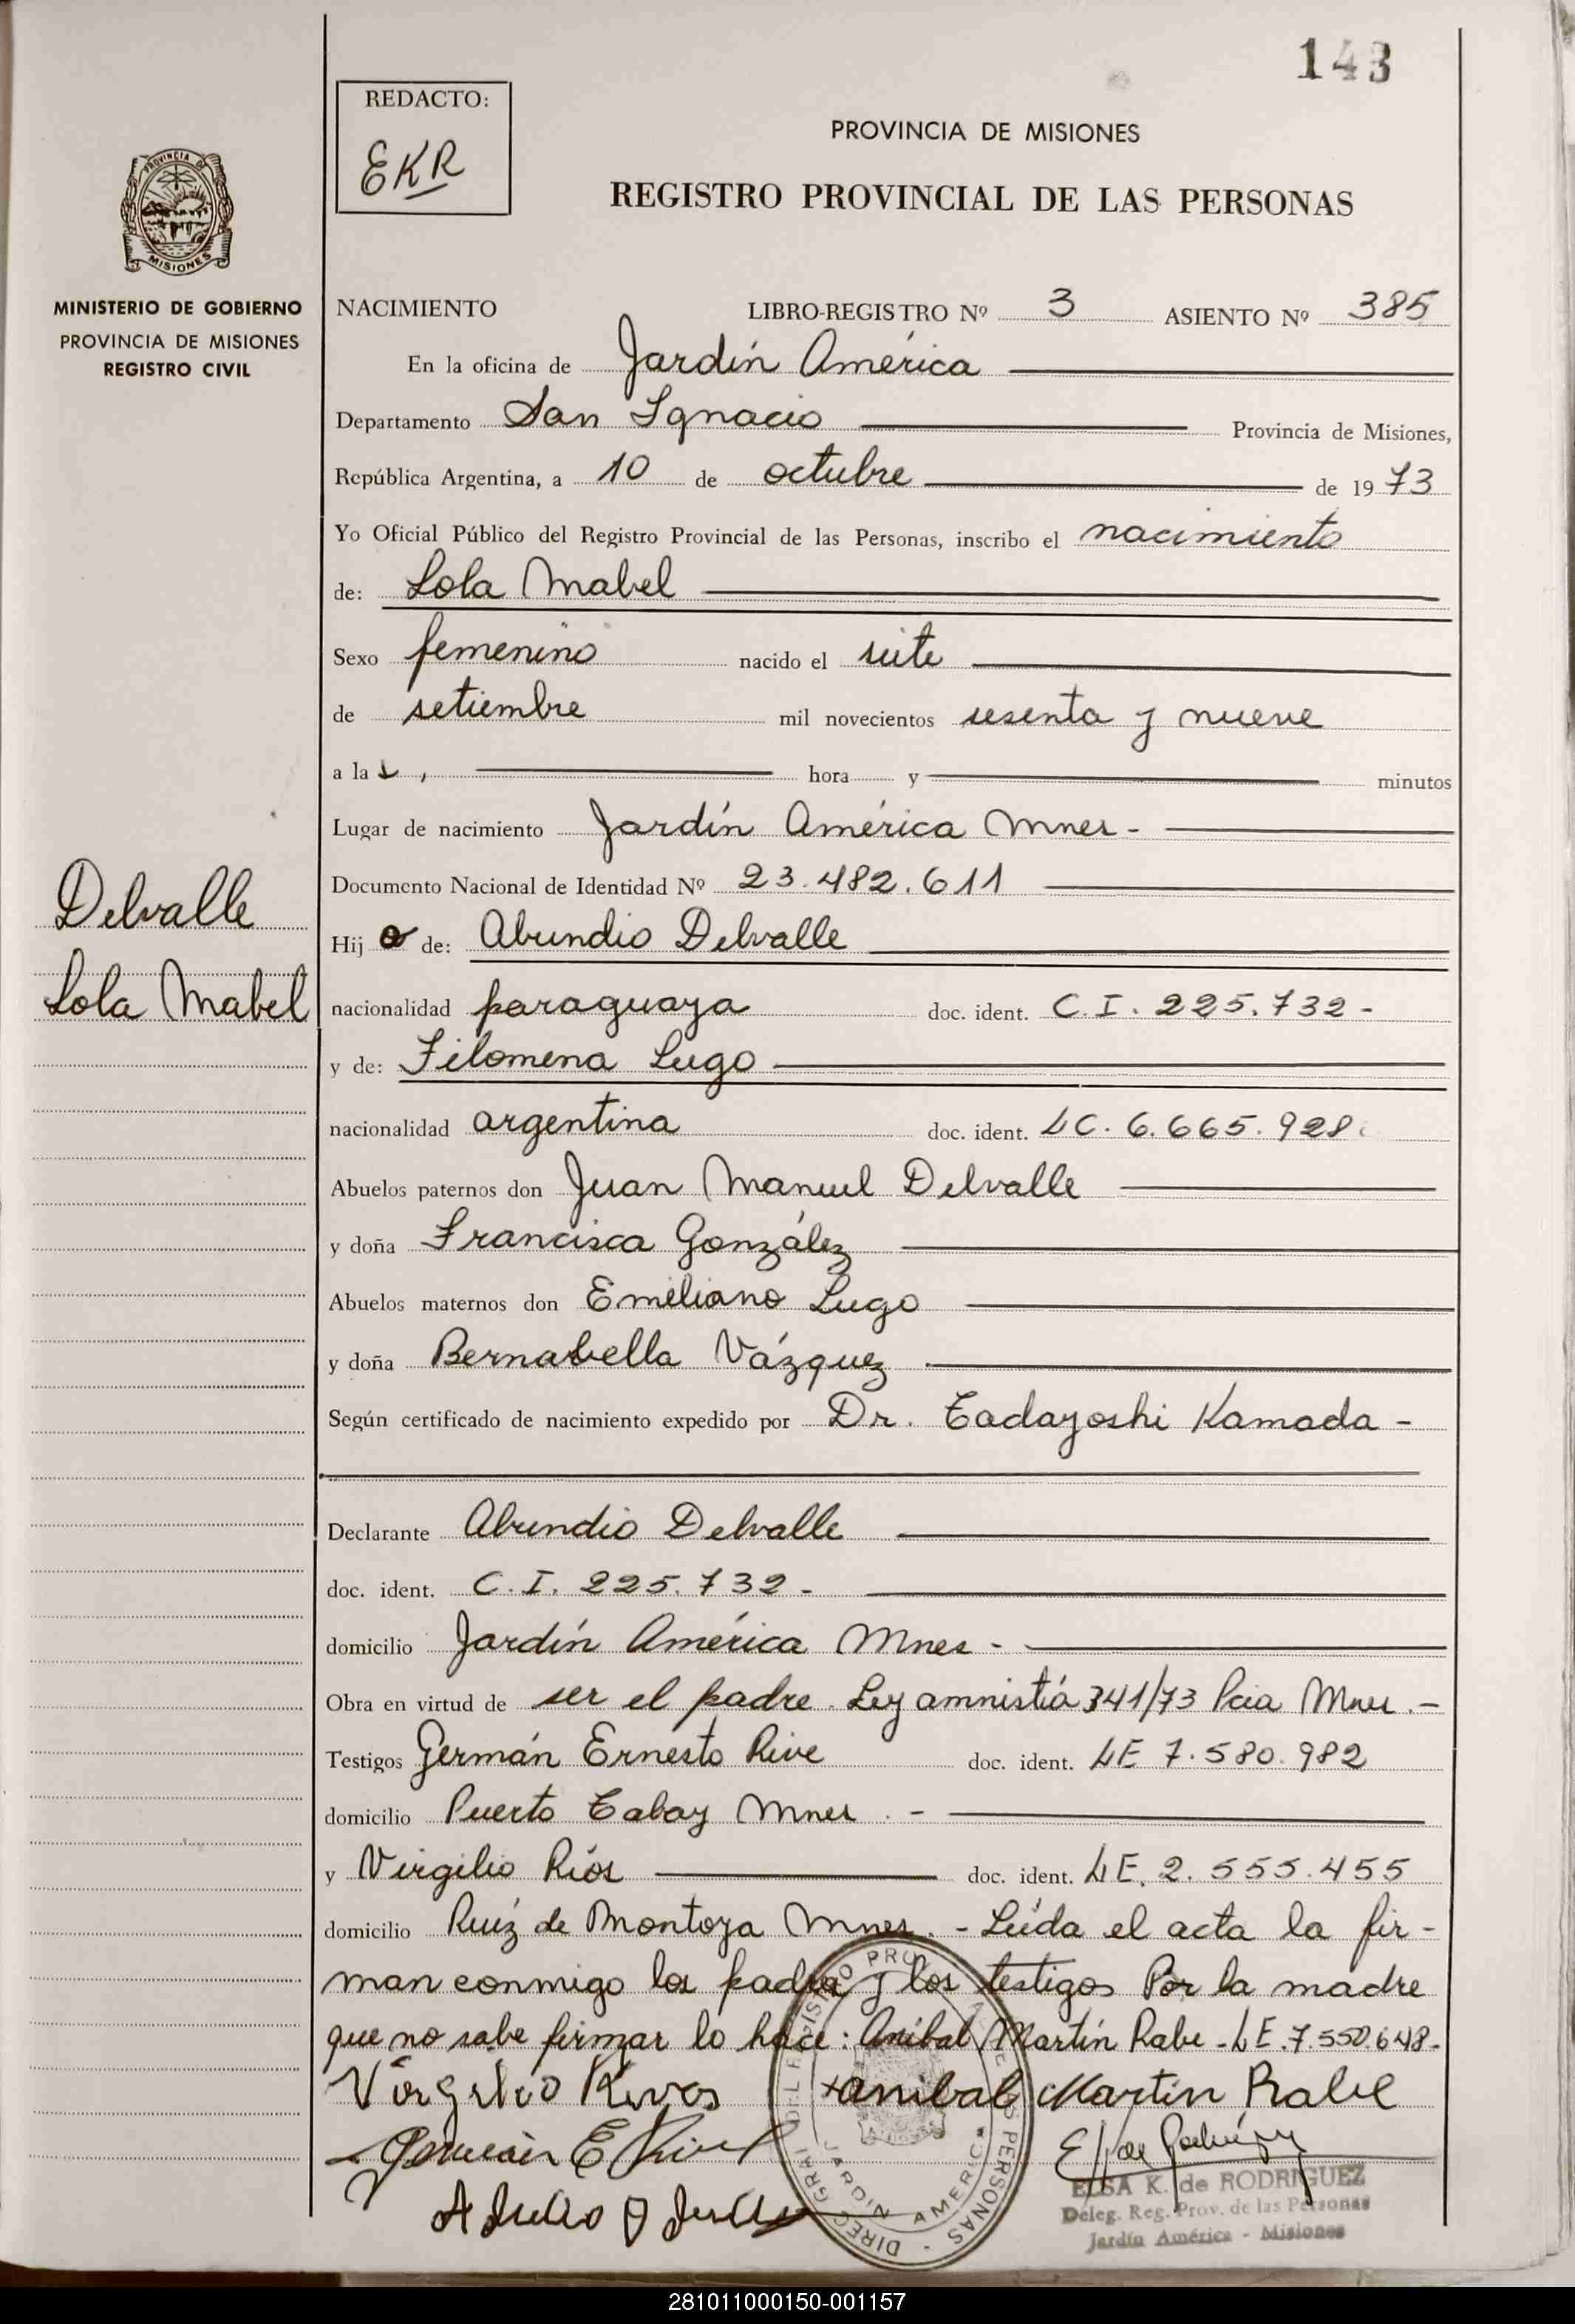 143
REDACTO:
EKR
PROVINCIA DE MISIONES
REGISTRO PROVINCIAL DE LAS PERSONAS
PROVINCIA DE
MISIONES
MINISTERIO DE GOBIERNO
PROVINCIA DE MISIONES
REGISTRO CIVIL
NACIMIENTO LIBRO-REGISTRO Nº 3 ASIENTO Nº 385
En la oficina de Jardín América
Departamento San Ignacio Provincia de Misiones,
República Argentina, a 10 de octubre de 1973
Yo Oficial Público del Registro Provincial de las Personas, inscribo el nacimiento
de: Lola Mabel
Sexo femenino nacido el siete
de setiembre mil novecientos sesenta y nueve
a la hora y minutos
Lugar de nacimiento Jardín América Mnes-
Documento Nacional de Identidad Nº 23.482.611
Delvalle
Lola Mabel
Hija de: Abundio Delvalle
nacionalidad paraguaya doc. ident. C.I. 225.732-
y de: Filomena Lugo
nacionalidad argentina doc. ident. LC. 6.665.928
Abuelos paternos don Juan Manuel Delvalle
y doña Francisca González
Abuelos maternos don Emiliano Lugo
y doña Bernabella Vázquez
Según certificado de nacimiento expedido por Dr. Tadayoshi Kamada-
Declarante Abundio Delvalle
doc. ident. C.I. 225.732-
domicilio Jardín América Mnes-
Obra en virtud de ser el padre. Ley amnistiá 341/73 Pcia Mnes.-
Testigos Germán Ernesto Rive doc. ident. LE 7.580.982
domicilio Puerto Tabay Mnes.-
y Virgilio Ríos doc. ident. LE. 2.555.455
domicilio Ruíz de Montoya Mnes.- Leída el acta la fir-
man conmigo los padres y los testigos Por la madre
que no sabe firmar lo hace: Aníbal Martín Rabe-LE.7.550.648-
anibal Martin Rabe
ELSA K. de RODRIGUEZ
Deleg. Reg. Prov. de las Personas
Jardín América - Misiones
JARDIN AMERICA
281011000150-001157